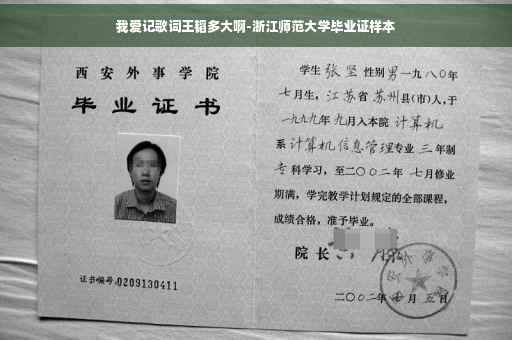 我爱记歌词王韬多大啊-浙江师范大学毕业证样本
西安外事学院
毕业证书
证书编号:0209130411
学生 张坚 性别男一九八〇年
七月生，江苏省苏州县(市)人,于
一九九九年九月入本院 计算机
系计算机信息管理专业 三年制
专科学习，至二〇〇二年 七月修业
期满，学完教学计划规定的全部课程，
成绩合格，准予毕业。
院长
二〇〇二年 月五日